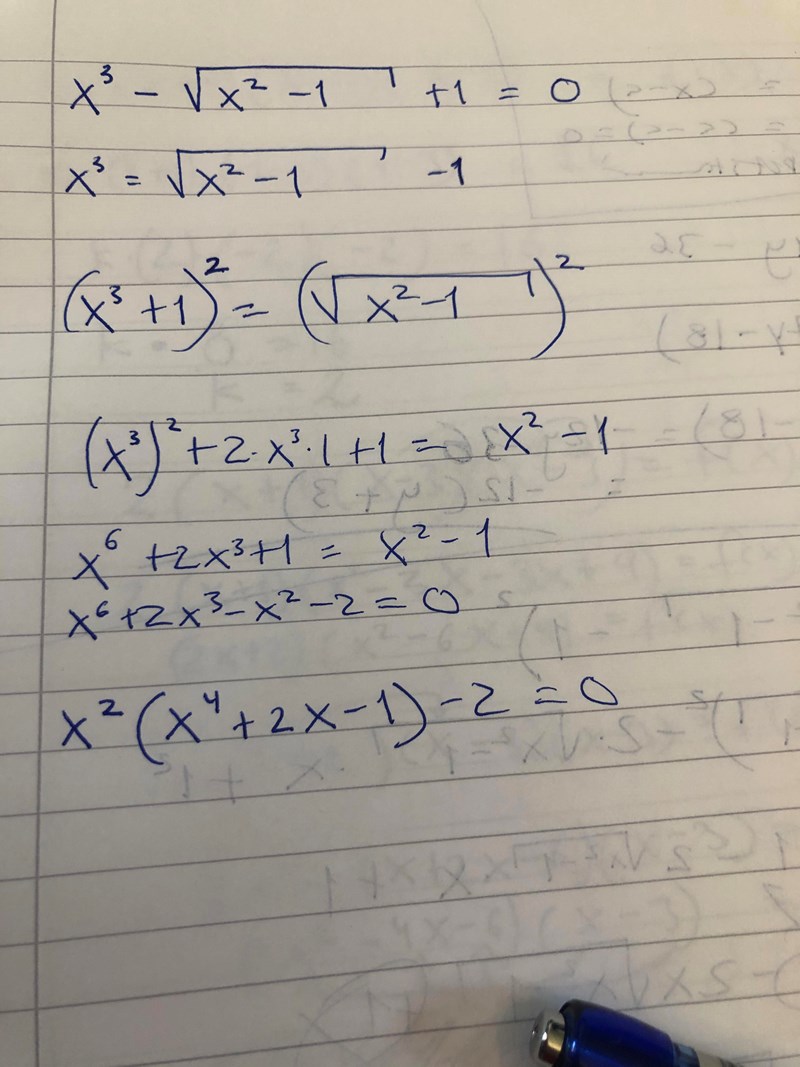 x³ - √(x² - 1) + 1 = 0
x³ = √(x² - 1) - 1
(x³ + 1)² = (√(x² - 1))²
(x³)² + 2·x³·1 + 1 = x² - 1
x⁶ + 2x³ + 1 = x² - 1
x⁶ + 2x³ - x² - 2 = 0
x² (x⁴ + 2x - 1) - 2 = 0